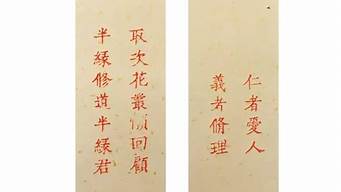 取次花叢懶回顧
半緣修道半緣君
仁者愛人
義者脩理